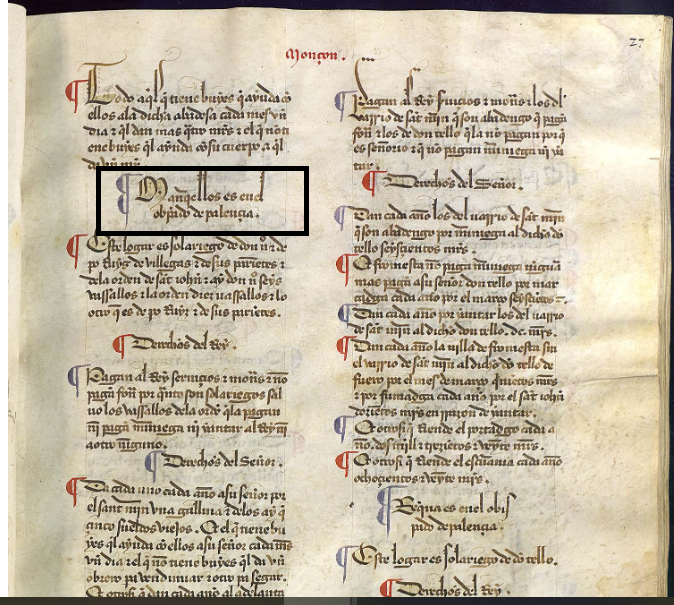 27
Monçon.
Todo aq̃l q̃ tiene buyes q̃ ayuda cõ
ellos a la dicha abadesa cada mes vn
dia ⁊ q̃l dan mas q̃tro mr̃s ⁊ el q̃ nõ ti
ene buyes q̃l ayuda cõ su cuerpo a q̃l
es en el
obp̃ado de palençia.
Este logar es solariego de don ⁊ de
po Ruyς de villegas ⁊ de sus parientes ⁊
de la orden de sãt iohñ ⁊ ay don seys
vassallos ⁊ la orden diez vassallos ⁊ lo
otro q̃ es de po Ruyς ⁊ de sus parientes.
Derechos del Rey.
Pagan al Rey seruiçios ⁊ mon̄s ⁊ nõ
pagã fon̄ por q̃nto son solariegos sal
uo los vassallos de la ordẽ q̃ la pagan
nj̃ pagã mj̃niega nj̃ yantar al Rey nj̃
a otro nĩguno.
Derechos del Señor.
Da cada vno cada año a su señor por
el sant mj̃n vna gallina ⁊ de los ay q̃
çinco sueldos viejos. Et el q̃ tiene bu
yes q̃l ayuda cõ ellos a su señor cada mes
vn dia ⁊ el q̃ nõ tiene buyes q̃l da vn
obrero pa vendimiar ⁊ otro pa segar.
Et otrosi q̃ dan cada año al adelanta
Pagan al Rey seruiçios ⁊ mon̄s ⁊ los dl̃
varrio de sãt mj̃n q̃ son abadengo q̃ pagã
fon̄ ⁊ los de don tello q̃ la nõ pagan por q̃
es señorio ⁊ q̃ nõ pagan mj̃niega nj̃ yã
tar.
Derechos del Señor.
Dan cada año los del varrio de sãt mj̃n
q̃ son abadengo por mj̃niega al dicho dõ
tello seysçientos mr̃s.
Et fromesta nõ paga mj̃niega nĩguna
mas paga a su señor don tello por mar
tadga cada año por el março seysçientos
Dan cada año por yantar los del varrio
de sãt mj̃n al dicho don tello. dc. mr̃s.
Dan cada año la villa de fromesta sin
el varrio de sãt mj̃n al dicho dõ tello de
fuero por el mes de março q̃nientos mr̃s
⁊ por fumadga cada año por el sãt iohñ
dozientos mr̃s en razon de yantar.
Et otrosi q̃ Riende el portadgo cada a
ño. dos mill ⁊ trezientos ⁊ veynte mr̃s.
Et otrosi q̃ Riende el esc̃uania cada año
ochoçientos ⁊ veynte mr̃s.
es en el obis
pado de palençia.
Este logar es solariego de dõ tello.
Derechos del Rey.